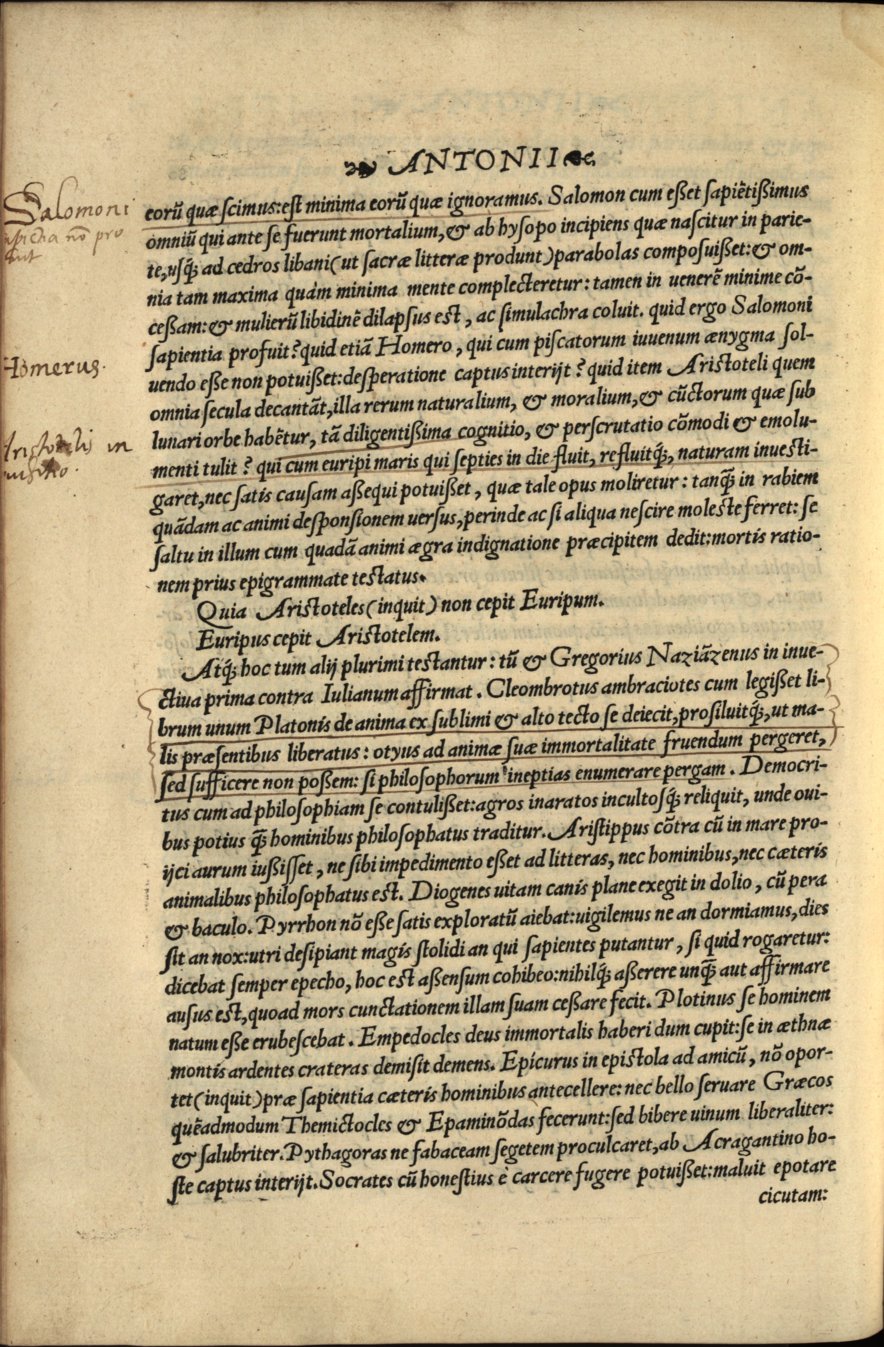 ANTONII
Salomoni
nō pro
Homerus.
in
eorū quæ ſcimus: eſt minima eorū quæ ignoramus. Salomon cum eßet ſapiētißimus
omniū qui ante ſe fuerunt mortalium, & ab hyſopo incipiens quæ naſcitur in parie-
te, uſq́; ad cedros libani (ut ſacræ litteræ produnt) parabolas compoſuißet: & om-
nia tam maxima quàm minima mente complecteretur: tamen in uenerē minime cō-
ceßam: & mulierū libidinē dilapſus eſt, ac ſimulachra coluit. quid ergo Salomoni
ſapientia profuit? quid etiā Homero, qui cum piſcatorum iuuenum ænygma ſol-
uendo eße non potuißet: deſperatione captus interijt? quid item Ariſtoteli quem
omnia ſecula decantāt, illa rerum naturalium, & moralium, & cūctorum quæ ſub
lunari orbe habētur, tā diligentißima cognitio, & perſcrutatio cōmodi & emolu-
menti tulit? qui cum euripi maris qui ſepties in die fluit, refluitq́;, naturam inueſti-
garet, nec ſatis cauſam aßequi potuißet, quæ tale opus moliretur: tanq̄ in rabiem
quādam ac animi deſponſionem uerſus, perinde ac ſi aliqua neſcire moleſte ferret: ſe
ſaltu in illum cum quadā animi ægra indignatione præcipitem dedit: mortis ratio-
nem prius epigrammate teſtatus.
Quia Ariſtoteles (inquit) non cepit Euripum.
Euripus cepit Ariſtotelem.
Atq́; hoc tum alij plurimi teſtantur: tū & Gregorius Naziāzenus in inue-
ctiua prima contra Iulianum affirmat. Cleombrotus ambraciotes cum legißet li-
brum unum Platonis de anima ex ſublimi & alto tecto ſe deiecit, proſiluitq́;, ut ma-
lis præſentibus liberatus: otyus ad animæ ſuæ immortalitate fruendum pergeret,
ſed ſufficere non poßem: ſi philoſophorum ineptias enumerare pergam. Democri-
tus cum ad philoſophiam ſe contulißet: agros inaratos incultoſq́; reliquit, unde oui-
bus potius q̄ hominibus philoſophatus traditur. Ariſtippus cōtra cū in mare pro-
ijci aurum iußiſſet, ne ſibi impedimento eßet ad litteras, nec hominibus, nec cæteris
animalibus philoſophatus eſt. Diogenes uitam canis plane exegit in dolio, cū pera
& baculo. Pyrrhon nō eße ſatis exploratū aiebat: uigilemus ne an dormiamus, dies
ſit an nox: utri deſipiant magis ſtolidi an qui ſapientes putantur, ſi quid rogaretur:
dicebat ſemper epecho, hoc eſt aßenſum cohibeo: nihilq́; aßerere unq̄ aut affirmare
auſus eſt, quoad mors cunctationem illam ſuam ceßare fecit. Plotinus ſe hominem
natum eße erubeſcebat. Empedocles deus immortalis haberi dum cupit: ſe in æthnæ
montis ardentes crateras demiſit demens. Epicurus in epiſtola ad amicū, nō opor-
tet (inquit) præ ſapientia cæteris hominibus antecellere: nec bello ſeruare Græcos
quēadmodum Themictocles & Epaminōdas fecerunt: ſed bibere uinum liberaliter:
& ſalubriter. Pythagoras ne fabaceam ſegetem proculcaret, ab Acragantino ho-
ſte captus interijt. Socrates cū honeſtius è carcere fugere potuißet: maluit epotare
cicutam: